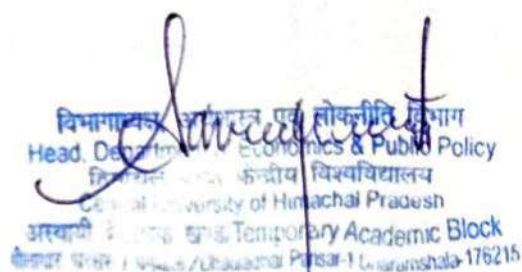 विभागाध्यक्ष, अर्थशास्त्र एवं लोकनीति विभाग
Head, Department Economics & Public Policy
केन्द्रीय विश्वविद्यालय
Central University of Himachal Pradesh
अस्थायी खण्ड/Temporary Academic Block
धौलाधार परिसर-1 Parisar-1 Dharamshala-176215